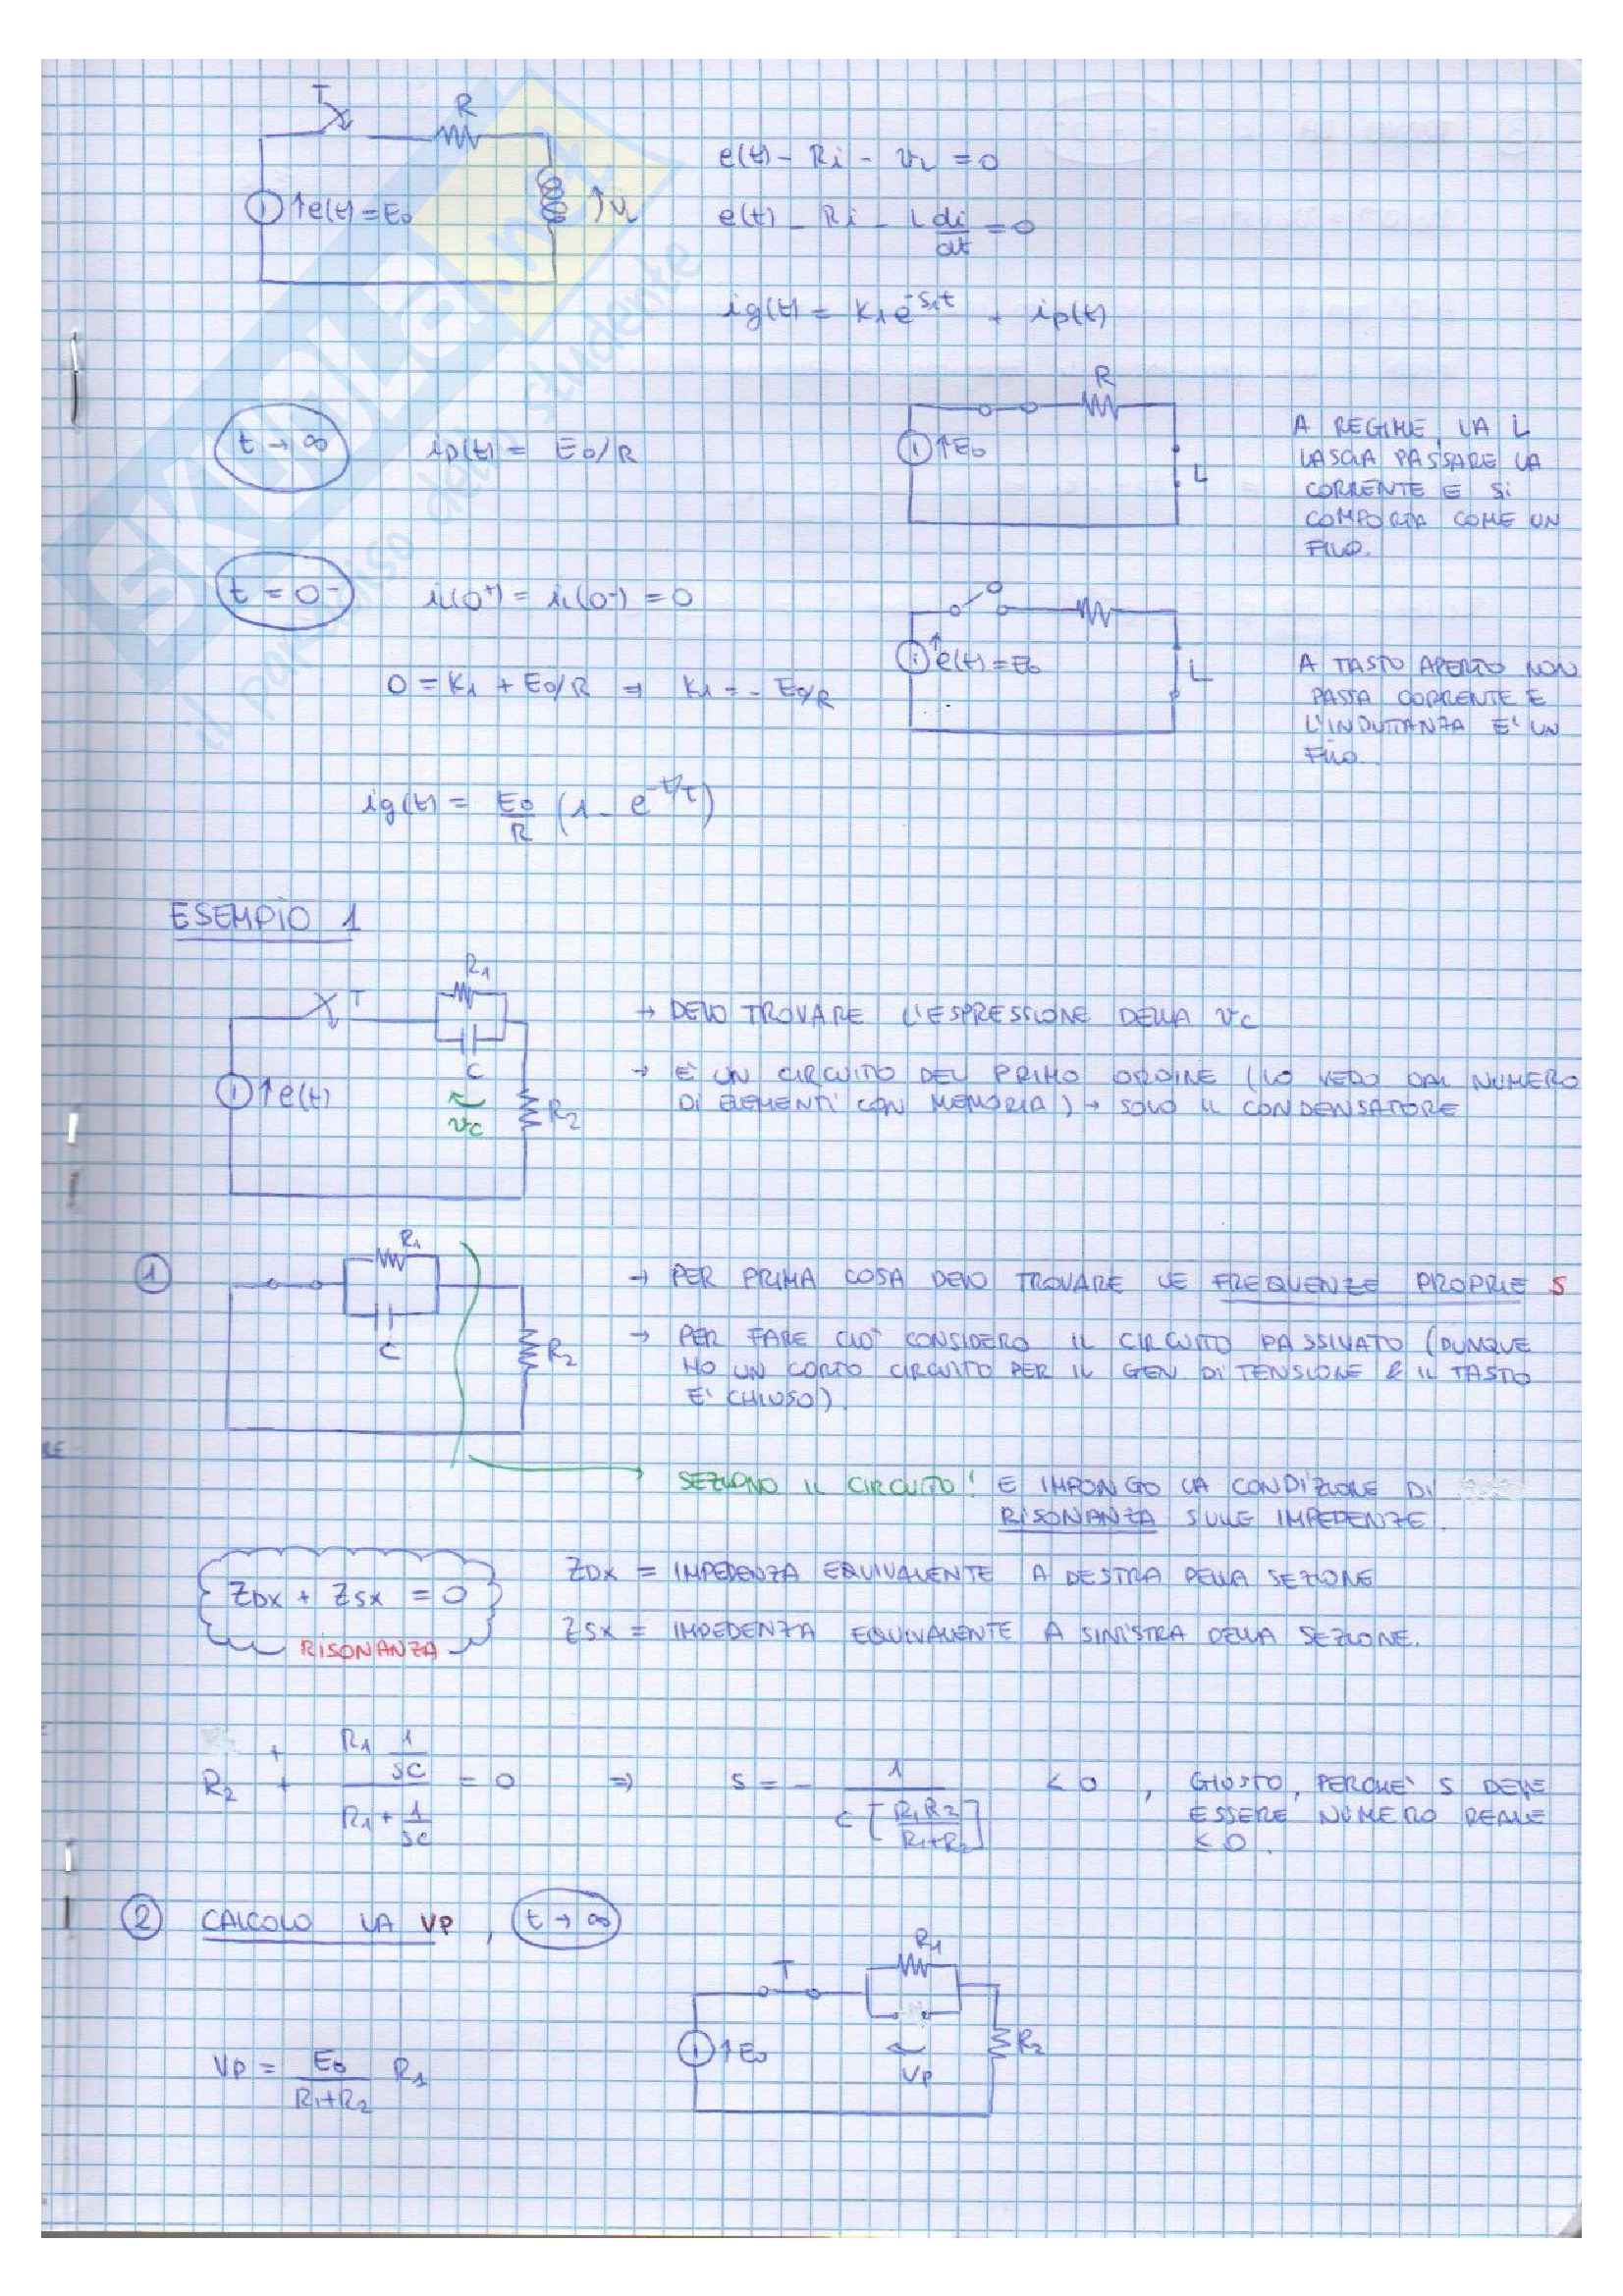 T
R
e(t) - Ri - vL = 0
↑e(t) = E0
↑vL
e(t) - Ri - L di/dt = 0
ig(t) = K1 e^-s1t + ip(t)
R
t → ∞
ip(t) = E0/R
↑E0
L
A REGIME, LA L
LASCIA PASSARE LA
CORRENTE E SI
COMPORTA COME UN
FILO.
t = 0-
iL(0+) = iL(0-) = 0
e(t) = E0
L
0 = K1 + E0/R ⇒ K1 = - E0/R
A TASTO APERTO NON
PASSA CORRENTE E
L'INDUTTANZA E' UN
FILO.
ig(t) = E0/R (1 - e^-t/τ)
ESEMPIO 1
R1
T
→ DEVO TROVARE L'ESPRESSIONE DELLA vC
C
↑e(t)
vC
R2
→ E' UN CIRCUITO DEL PRIMO ORDINE (LO VEDO DAL NUMERO
DI ELEMENTI CON MEMORIA) → SOLO IL CONDENSATORE
1
R1
C
R2
→ PER PRIMA COSA DEVO TROVARE LE FREQUENZE PROPRIE S
→ PER FARE CIO' CONSIDERO IL CIRCUITO PASSIVATO (DUNQUE
HO UN CORTO CIRCUITO PER IL GEN DI TENSIONE & IL TASTO
E' CHIUSO)
SEZIONO IL CIRCUITO! E IMPONGO LA CONDIZIONE DI
RISONANZA SULLE IMPEDENZE.
ZDX + ZSX = 0
RISONANZA
ZDX = IMPEDENZA EQUIVALENTE A DESTRA DELLA SEZIONE
ZSX = IMPEDENZA EQUIVALENTE A SINISTRA DELLA SEZIONE.
R2 + (R1 1/sC)/(R1 + 1/sC) = 0 ⇒ s = - 1/(C [R1R2/(R1+R2)]) < 0 , GIUSTO, PERCHE' S DEVE
ESSERE NUMERO REALE
< 0.
2 CALCOLO LA VP, t → ∞
T
R1
↑E0
VP
R2
VP = E0/(R1+R2) R1
SKUOLA.net
il paradiso dello studente